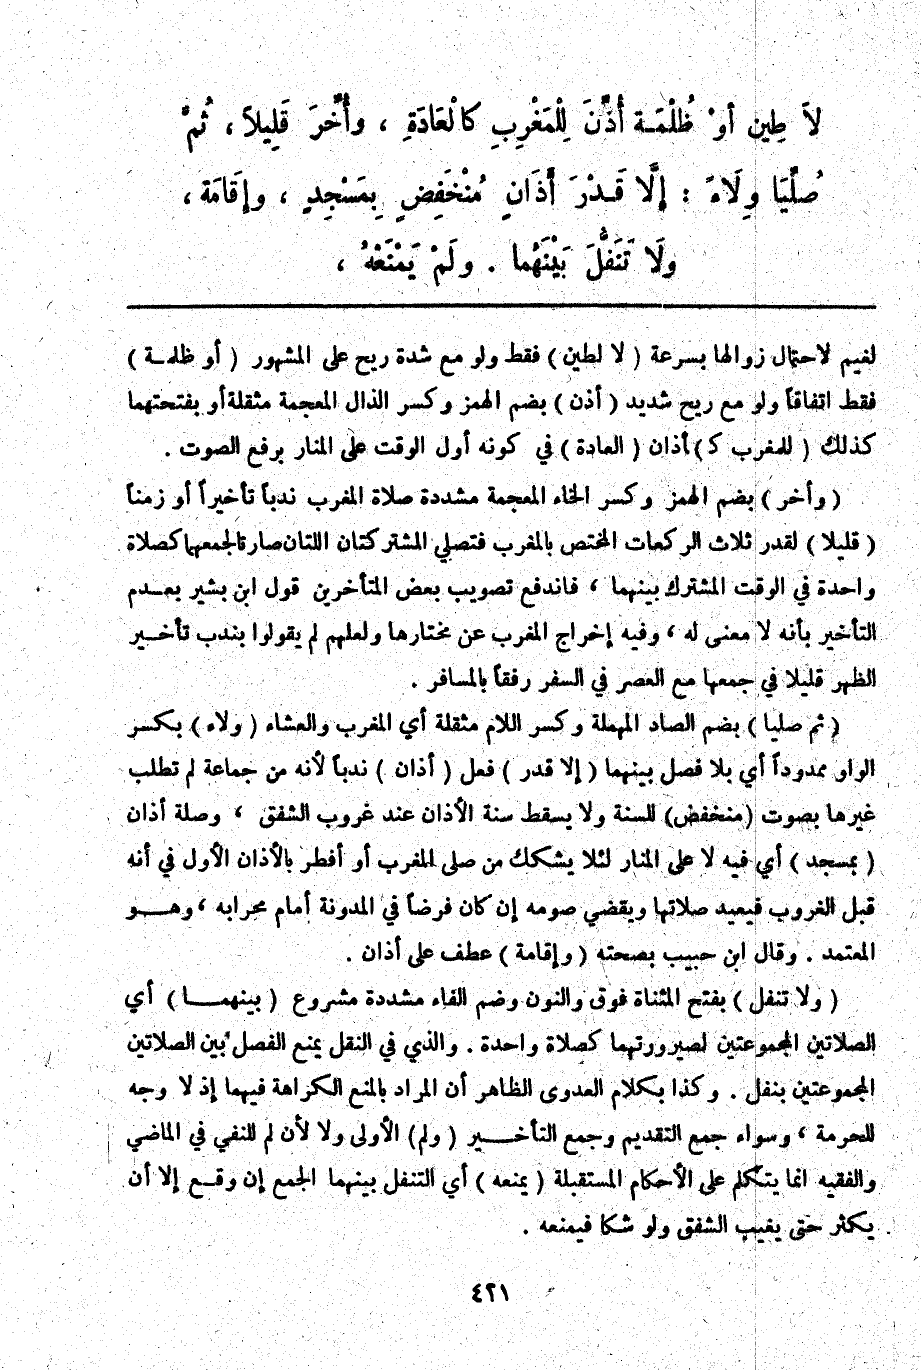 لاَ طِينٍ أوْ ظُلْمَـة أُذِّنَ لِلْمَغْرِبِ كالْعَادَةِ ، وأُخِّرَ قَلِيلاً ، ثُمَّ
صُلِّيَا وِلَاءً : إلَّا قَـدْرَ أَذَانٍ مُنْخَفِضٍ بِمَسْجِدٍ ، وإقَامَة ،
ولَا تَنَفُّلَ بَيْنَهُما . ولَمْ يَمْنَعْهُ ،
لغيم لاحتمال زوالها بسرعة ( لا لطين ) فقط ولو مع شدة ريح على المشهور ( أو ظلمـة )
فقط اتفاقاً ولو مع ريح شديد ( أذن ) بضم الهمز وكسر الذال المعجمة مثقلة أو بفتحتهما
كذلك ( للمغرب كـ ) أذان ( العادة ) في كونه أول الوقت على المنار برفع الصوت .
( وأخر ) بضم الهمز وكسر الخاء المعجمة مشددة صلاة المغرب ندباً تأخيراً أو زمناً
( قليلا ) لقدر ثلاث الركعات المختص بالمغرب فتصلي المشتركتان اللتان صارتا لجمعهما كصلاة
واحدة في الوقت المشترك بينهما ، فاندفع تصويب بعض المتأخرين قول ابن بشير بعـدم
التأخير بأنه لا معنى له ، وفيه إخراج المغرب عن مختارها ولعلهم لم يقولوا بندب تأخـير
الظهر قليلا في جمعها مع العصر في السفر رفقاً بالمسافر .
( ثم صليا ) بضم الصاد المهملة وكسر اللام مثقلة أي المغرب والعشاء ( ولاء ) بكسر
الواو ممدوداً أي بلا فصل بينهما ( إلا قدر ) فعل ( أذان ) ندباً لأنه من جماعة لم تطلب
غيرها بصوت (منخفض) للسنة ولا يسقط سنة الأذان عند غروب الشفق ، وصلة أذان
( بمسجد ) أي فيه لا على المنار لئلا يشكك من صلى المغرب أو أفطر بالأذان الأول في أنه
قبل الغروب فيعيد صلاتها ويقضي صومه إن كان فرضاً في المدونة أمام محرابه ، وهـــو
المعتمد . وقال ابن حبيب بصحته ( وإقامة ) عطف على أذان .
( ولا تنفل ) بفتح المثناة فوق والنون وضم الفاء مشددة مشروع ( بينهمـــا ) أي
الصلاتين المجموعتين لصيرورتهما كصلاة واحدة . والذي في النقل يمنع الفصل بين الصلاتين
المجموعتين بنفل . وكذا بكلام العدوى الظاهر أن المراد بالمنع الكراهة فيهما إذ لا وجه
للحرمة ، وسواء جمع التقديم وجمع التأخـــير ( ولم) الأولى ولا لأن لم للنفي في الماضي
والفقيه انما يتكلم على الأحكام المستقبلة ( يمنعه ) أي التنفل بينهما الجمع إن وقـع إلا أن
يكثر حتى يغيب الشفق ولو شكا فيمنعه .
٤٢١